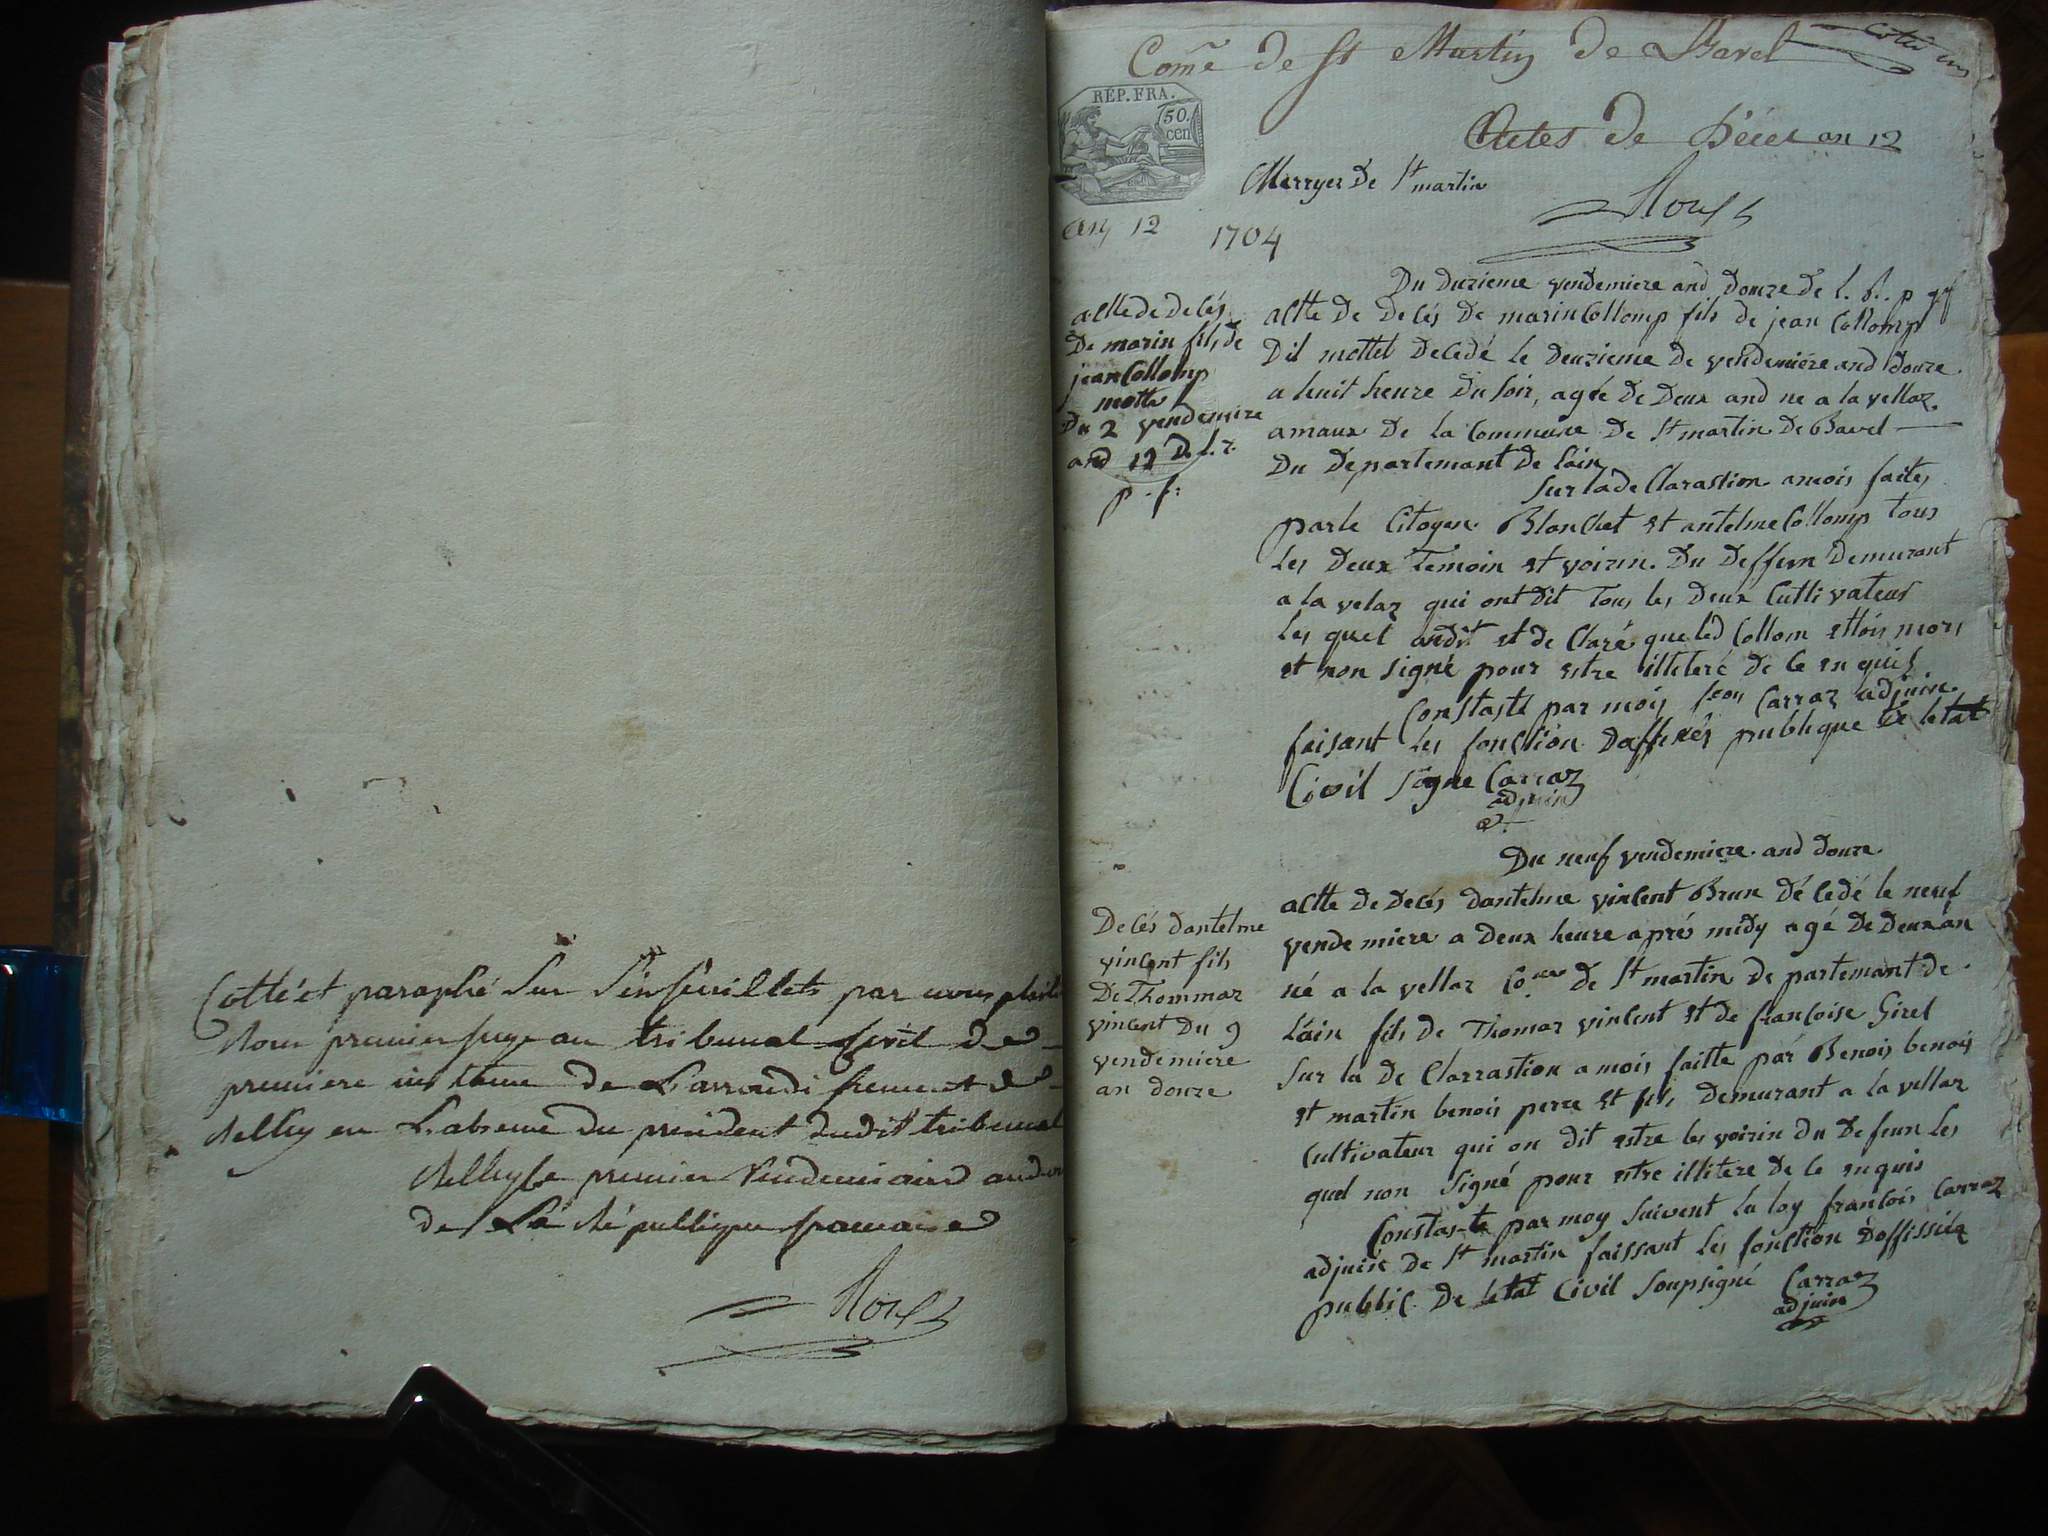 Cotté et paraphé sur six feuillets par nous
Roux premier juge au tribunal Civil de
premiere instance de Larrondissement de
Belley en Labsence du president dudit tribunal
Belley le premier Vendemiaire
de La République francaise
Roux
Comᵉ de St Martin De Bavel
Actes De Décès an 12
REP. FRA.
50. cen
Merryes De St martin
Roux
an 12 1704
actte de decés
De marin fils de
jean Collomp
mottet
Du 2 vendemiere
and 12 D. l. r.
p. f.
Du duzieme vendemiere and Douze De l. r. p
actte De Decés De marin Collomp fils de jean Collomp
Dit mottet Decedé le Deuzieme de vendemiére and Douze
a huit heure Du soir, agée De Deux and ne a la vellaz
amaux De la Commune De St martin De Bavel
Du Departemant de lain
sur la de Clarastion amois faites
par le Citoyen Blanchet et antelme Collomp tous
les Deux Temoin et voizin Du Deffeun Demurant
a la velaz qui ont dit Tous les Deux Cultivateur
les quel ondit et de Claré que led Collom ettois mors
et non signé pour estre illiteré de ce enquis
Constasté par mois Carraz adjuin
faisant les fonction publique De letat
Civil signe Carraz
adjuin
Du neuf vendemiere and douze
actte De Decés dantelme vincent Brun décedé le neuf
vende miere a Deux heure aprés midy agé De Deux an
né a la vellaz Co.ᵘⁿᵉ de St martin de partemant de
Láin fils de Thomaz vincent et de francoise Girel
sur la de Clarrastion a mois faitte par Benois benois
et martin benois perre et fils Demurant a la vellaz
Cultivateur qui on dit estre les voizin du Defeun les
quel non signé pour estre illitere de ce enquis
Constas-te par moy suivent la loy francois Carraz
adjuin De St martin faissant les fonction Doffissié
public De letat Civil soupsigné Carraz
adjuin
Decés dantelme
vincent fils
De Thommaz
vincent Du 9
vendemiere
an douze